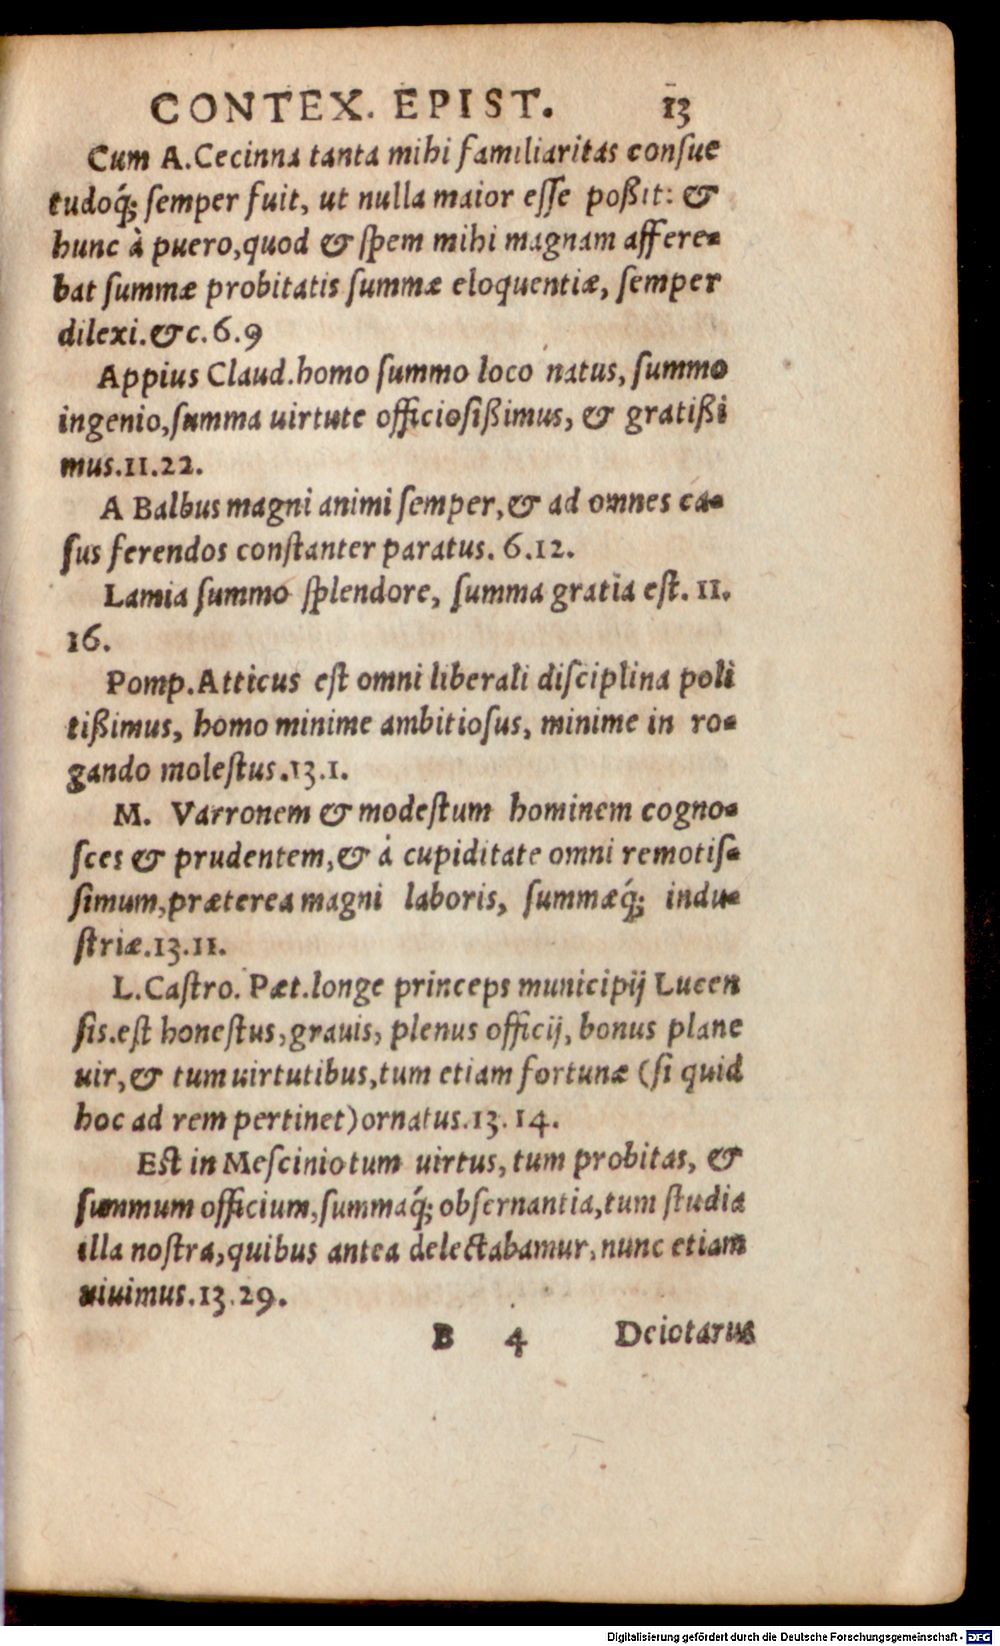 CONTEX. EPIST. 13
Cum A.Cecinna tanta mihi familiaritas consue
tudoq́; semper fuit, ut nulla maior esse poßit: &
hunc à puero,quod & spem mihi magnam affere-
bat summæ probitatis summæ eloquentiæ, semper
dilexi.&c.6.9
Appius Claud.homo summo loco natus, summo
ingenio,summa uirtute officiosißimus, & gratißi
mus.11.22.
A Balbus magni animi semper,& ad omnes ca-
sus ferendos constanter paratus. 6.12.
Lamia summo splendore, summa gratia est. 11.
16.
Pomp.Atticus est omni liberali disciplina poli
tißimus, homo minime ambitiosus, minime in ro-
gando molestus.13.1.
M. Varronem & modestum hominem cogno-
sces & prudentem,& à cupiditate omni remotis-
simum,præterea magni laboris, summæq́; indu-
striæ.13.11.
L.Castro. Pæt.longe princeps municipij Lucen
sis.est honestus,grauis, plenus officij, bonus plane
uir,& tum uirtutibus,tum etiam fortunæ (si quid
hoc ad rem pertinet)ornatus.13.14.
Est in Mescinio tum uirtus, tum probitas, &
summum officium,summaq́; obseruantia,tum studia
illa nostra,quibus antea delectabamur,nunc etiam
uiuimus.13.29.
B 4 Deiotarus
Digitalisierung gefördert durch die Deutsche Forschungsgemeinschaft - DFG